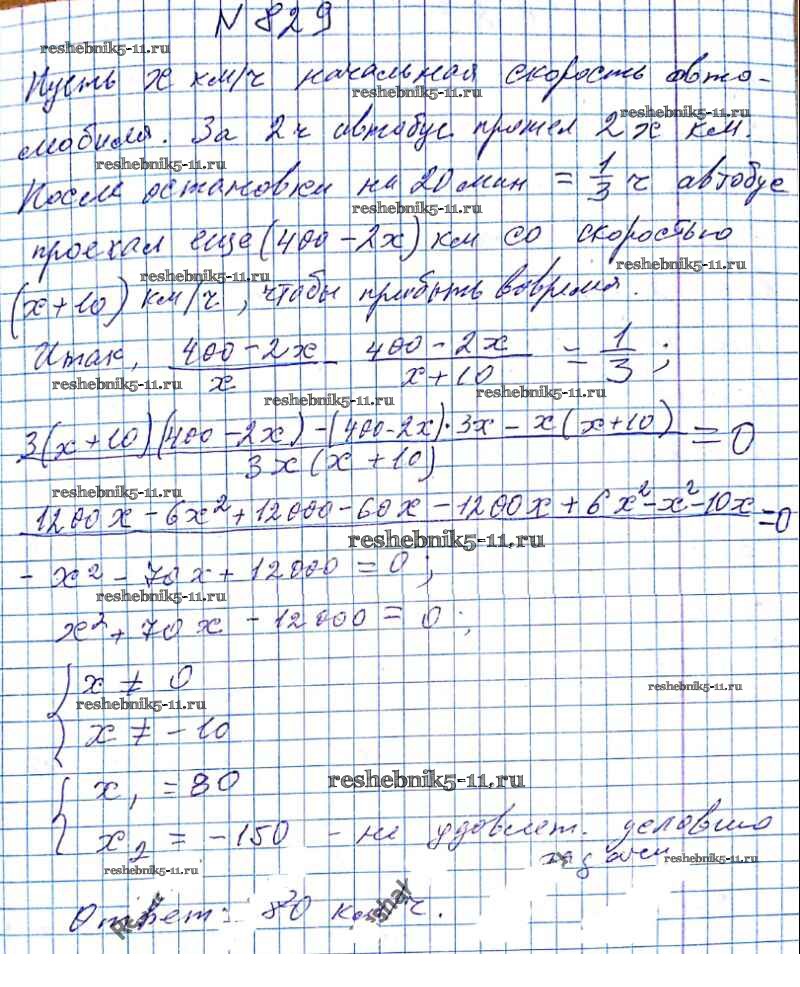 N 829
reshebnik5-11.ru
Пусть x км/ч начальная скорость авто-
reshebnik5-11.ru
reshebnik5-11.ru
мобиля. За 2 ч автобус прошел 2x км.
reshebnik5-11.ru
После остановки на 20 мин = 1/3 ч автобус
reshebnik5-11.ru
проехал еще (400 - 2x) км со скоростью
reshebnik5-11.ru reshebnik5-11.ru
(x+10) км/ч, чтобы прибыть вовремя.
Итак, (400 - 2x)/x - (400 - 2x)/(x + 10) = 1/3;
reshebnik5-11.ru reshebnik5-11.ru
(3(x+10)(400 - 2x) - (400 - 2x)·3x - x(x+10))/(3x(x+10)) = 0
reshebnik5-11.ru
1200x - 6x² + 12000 - 60x - 1200x + 6x² - x² - 10x = 0
reshebnik5-11.ru
- x² - 70x + 12000 = 0;
reshebnik5-11.ru
x² + 70x - 12000 = 0;
{ x ≠ 0
reshebnik5-11.ru reshebnik5-11.ru
x ≠ -10
{ x₁ = 80
reshebnik5-11.ru
x₂ = -150 - не удовлет. условию
задачи
reshebnik5-11.ru reshebnik5-11.ru
Ответ: 80 км/ч.